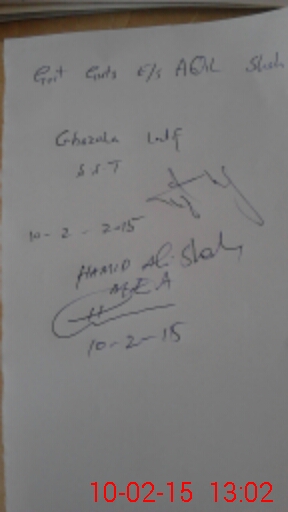 Govt Girls E/S AGAL Shah
Ghazala
S.S.T
10-2-2015
HAMID Ali Shah
MEA
10-2-15
10-02-15 13:02